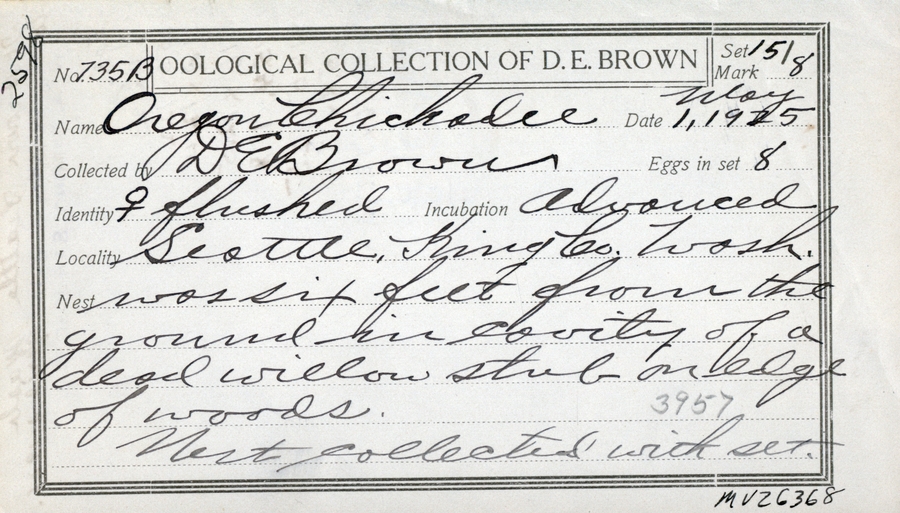 2598
OOLOGICAL COLLECTION OF D. E. BROWN
No. 735B
Set Mark 151/8
Name Oregon Chickadee Date May 1, 1925
Collected by D E Brown Eggs in set 8
Identity ♀ flushed Incubation Advanced
Locality Seattle, King Co. Wash.
Nest was six feet from the
ground in cavity of a
dead willow stub on edge
of woods. 3957
Nest collected with set.
MVZ6368